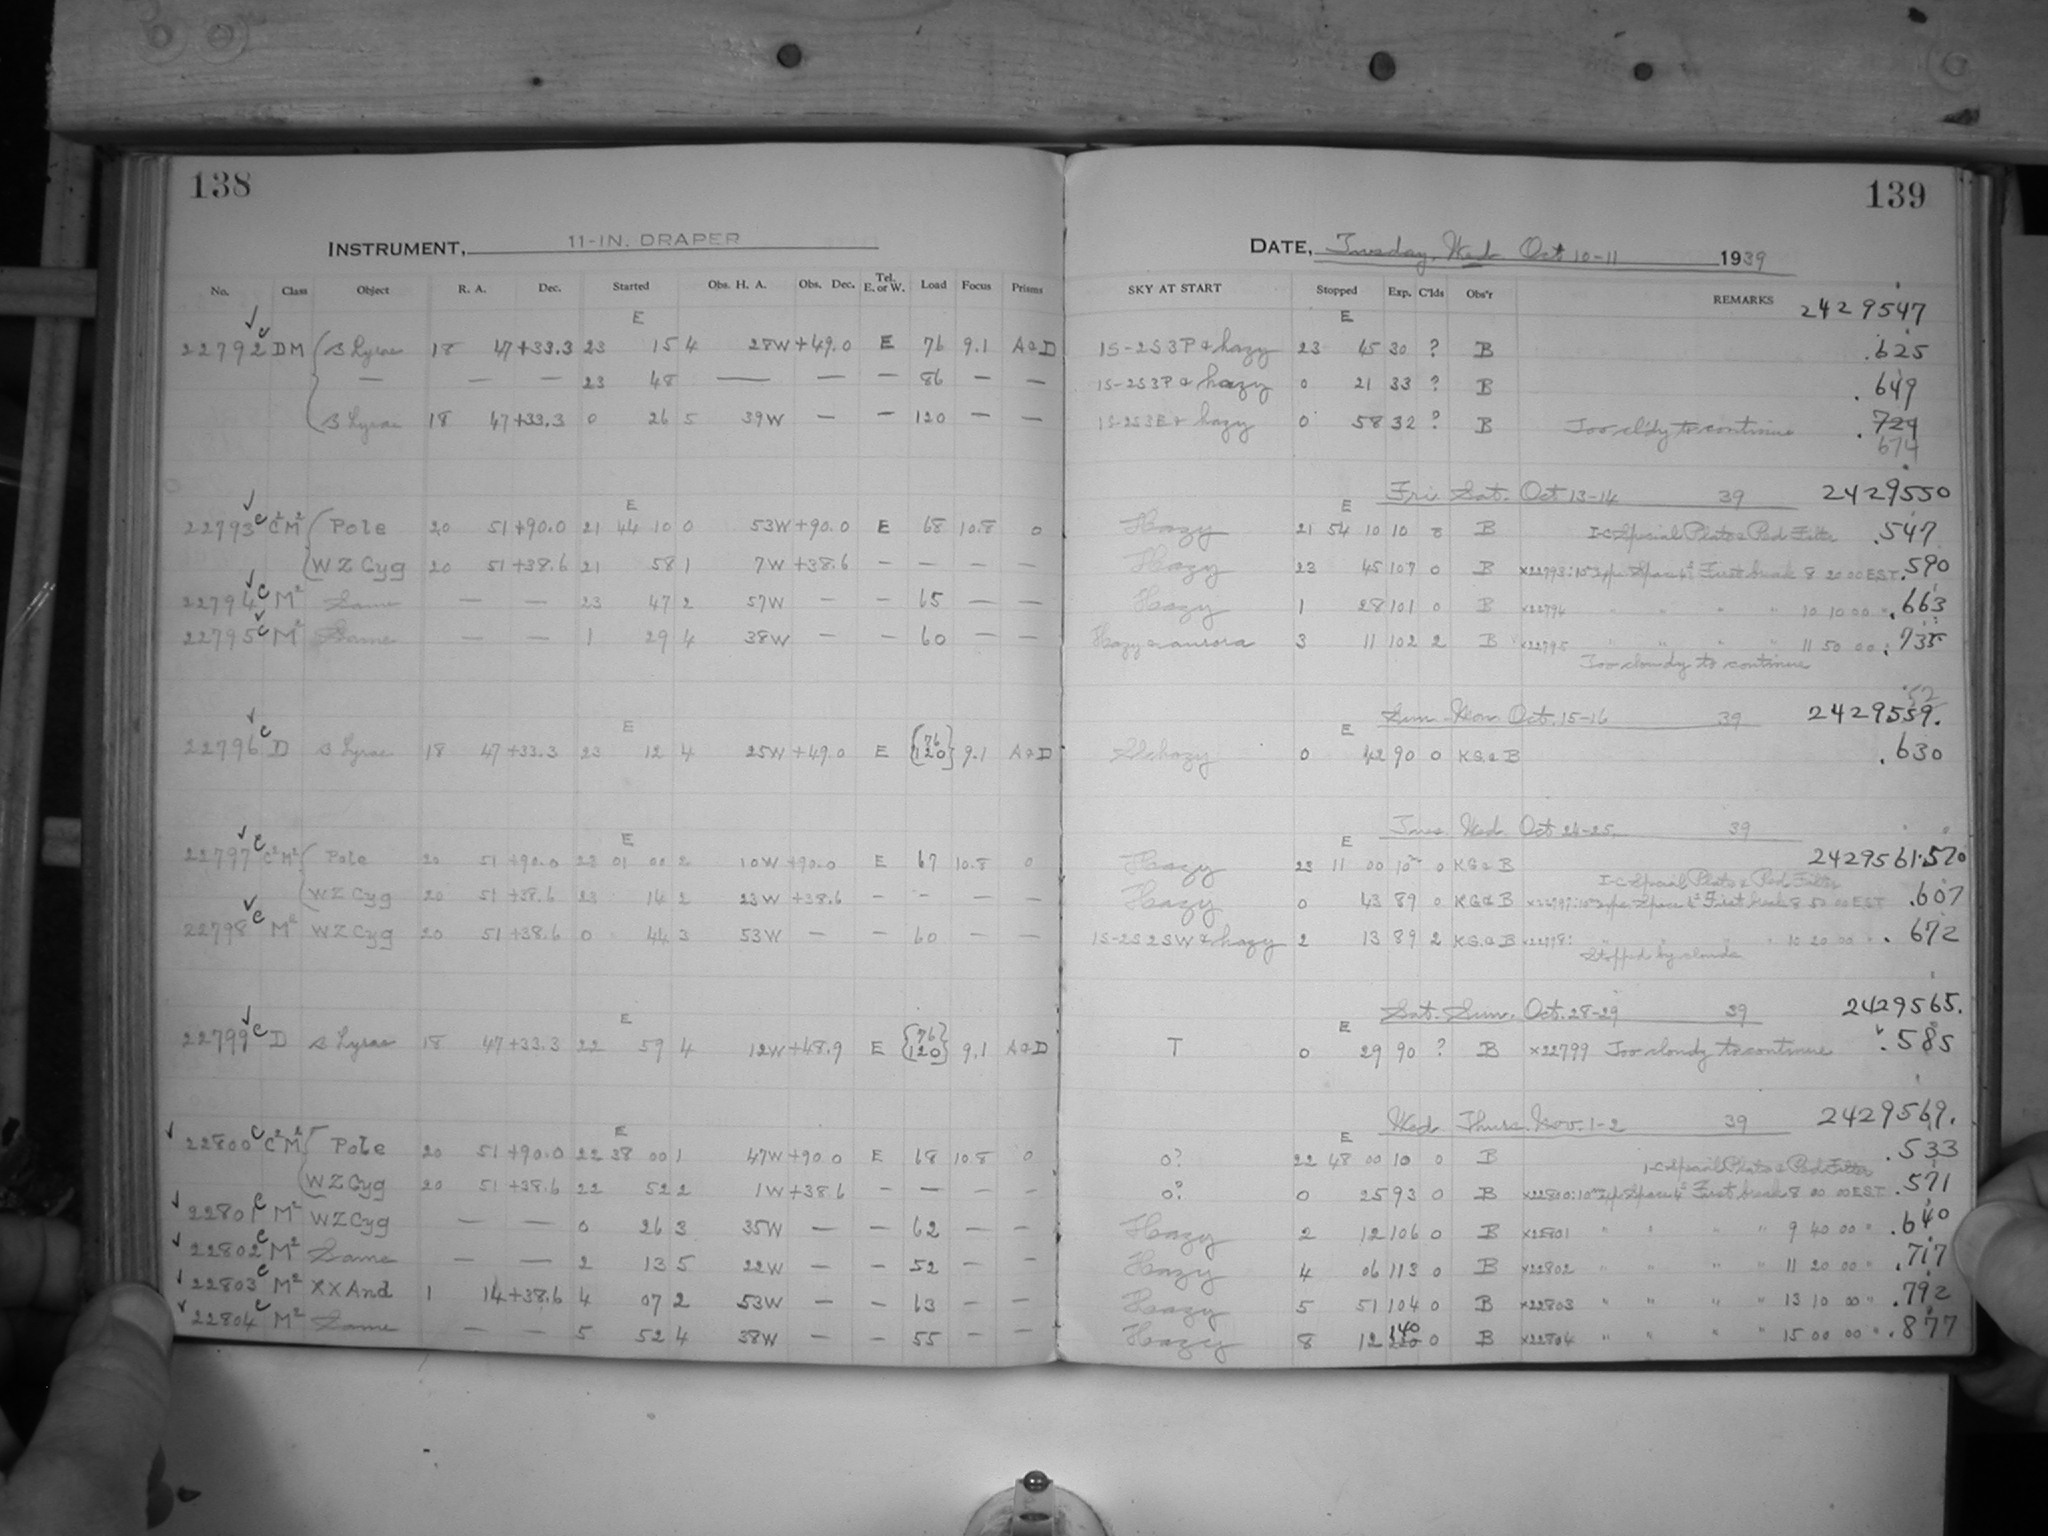 138
INSTRUMENT, 11-IN. DRAPER
No. Class Object R. A. Dec. Started Obs. H. A. Obs. Dec. Tel. E. or W. Load Focus Prisms
E
22792 c DM B Lyrae 18 47 +33.3 23 15 4 28W +49.0 E 76 9.1 A&D
— — — 23 48 — — — 86 — —
B Lyrae 18 47 +33.3 0 26 5 39W — — 120 — —
E
22793 c C²M² Pole 20 51 +90.0 21 44 10 0 53W +90.0 E 68 10.8 0
WZ Cyg 20 51 +38.6 21 58 1 7W +38.6 — — — —
22794 c M² Same — — 23 47 2 57W — — 65 — —
22795 c M² Same — — 1 29 4 38W — — 60 — —
E
22796 c D B Lyrae 18 47 +33.3 23 12 4 25W +49.0 E {76 120} 9.1 A&D
E
22797 c C²M² Pole 20 51 +90.0 23 01 00 2 10W +90.0 E 67 10.8 0
WZ Cyg 20 51 +38.6 23 14 2 23W +38.6 — — — —
22798 c M² WZ Cyg 20 51 +38.6 0 44 3 53W — — 60 — —
E
22799 c D B Lyrae 18 47 +33.3 22 59 4 12W +48.9 E {76 120} 9.1 A&D
E
22800 c C²M² Pole 20 51 +90.0 22 38 00 1 47W +90.0 E 68 10.8 0
WZ Cyg 20 51 +38.6 22 52 2 1W +38.6 — — — —
22801 c M² WZ Cyg — — 0 26 3 35W — — 62 — —
22802 c M² Same — — 2 13 5 22W — — 52 — —
22803 c M² XX And 1 14 +38.6 4 07 2 53W — — 63 — —
22804 c M² Same — — 5 52 4 38W — — 55 — —
139
DATE, Tuesday, Wed Oct 10-11 1939
SKY AT START Stopped Exp. C'lds Obs'r REMARKS 2429547
E
1S-2S3P & hazy 23 45 30 ? B .625
1S-2S3P & hazy 0 21 33 ? B .649
1S-2S3E & hazy 0 58 32 ? B Too cl'dy to continue .724
674
E Fri. Sat. Oct 13-14 39 2429550
Hazy 21 54 10 10 8 B I-C Special Plate & Red Filter .547
Hazy 23 45 107 0 B x22793: First break 8 20 00 EST .590
Hazy 1 28 101 0 B x22794 " " " " 10 10 00 " .663
Hazy & aurora 3 11 102 2 B x22795 " " " " 11 50 00 " .735
Too cloudy to continue
52
E Sun. Mon. Oct. 15-16 39 2429559.
Sl. hazy 0 42 90 0 KG & B .630
E Tues. Wed. Oct 24-25. 39
Hazy 23 11 00 10 0 KG & B 2429561.570
I-C Special Plate & Red Filter
Hazy 0 43 89 0 KG & B x22797: First break 8 50 00 EST .607
1S-2S2SW & hazy 2 13 89 2 KG & B x22798: " " " " 10 20 00 " .672
Stopped by clouds
E Sat. Sun. Oct. 28-29 39 2429565.
T 0 29 90 ? B x22799 Too cloudy to continue .585
E Wed Thurs. Nov. 1-2 39 2429569.
0? 22 48 00 10 0 B .533
I-C Special Plate & Red Filter
0? 0 25 93 0 B x22800: First break 8 00 00 EST .571
Hazy 2 12 106 0 B x22801 " " " " 9 40 00 " .640
Hazy 4 06 113 0 B x22802 " " " " 11 20 00 " .717
Hazy 5 51 104 0 B x22803 " " " " 13 10 00 " .792
Hazy 8 12 140 0 B x22804 " " " " 15 00 00 " .877